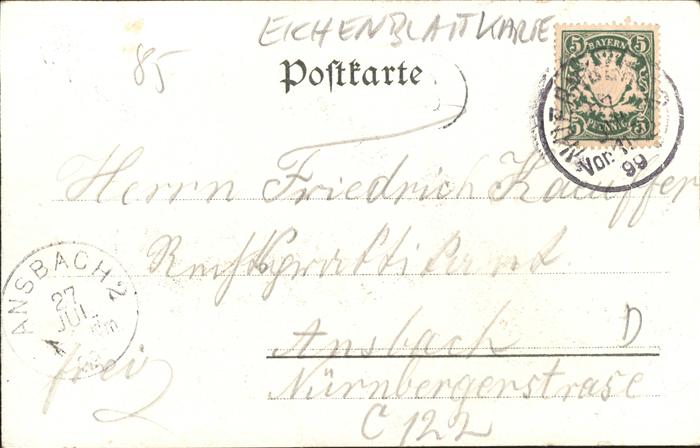 EICHENBLATTKARTE
85
Postkarte
5 BAYERN 5
5 PFENNIG 5
Vor. 11
99
Herrn Friedrich Kauffer
Rechtspraktikant
ANSBACH 2
27
JUL
Ansbach D
frei
Nürnbergerstrase
C 122